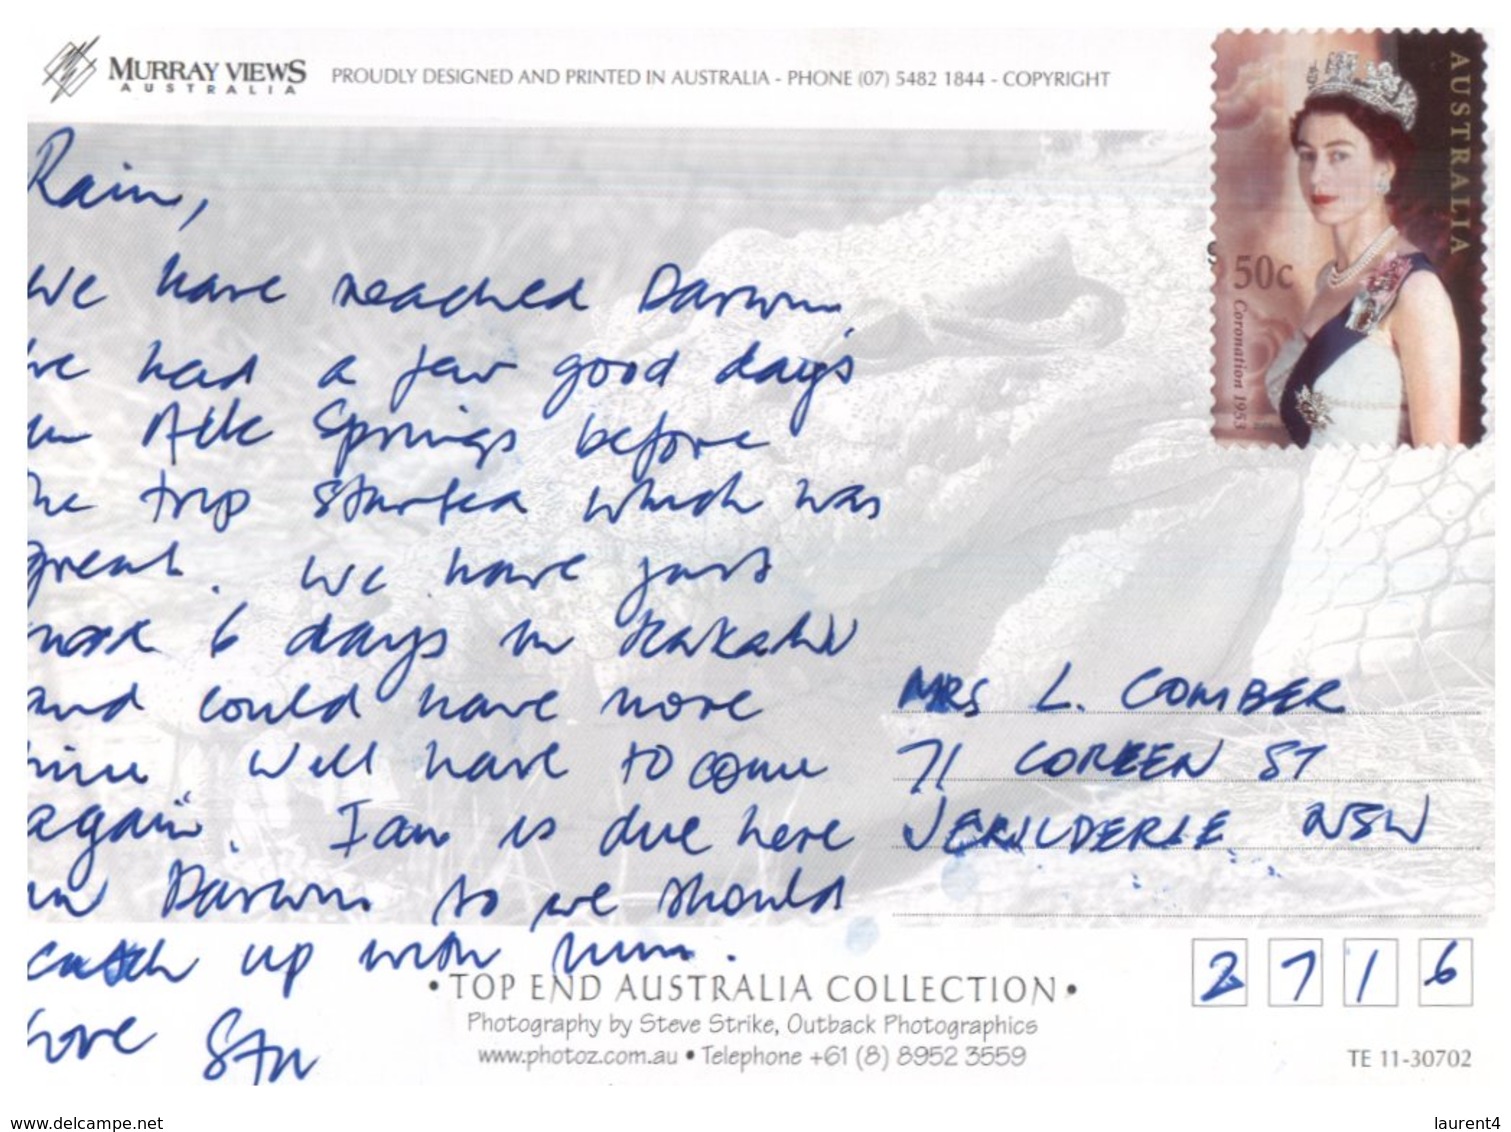 MURRAY VIEWS
AUSTRALIA
PROUDLY DESIGNED AND PRINTED IN AUSTRALIA - PHONE (07) 5482 1844 - COPYRIGHT
AUSTRALIA
50c
Coronation 1953
Rain,
We have reached Darwin,
we had a few good days
in Alic Springs before
the trip started which was
great. We have just
6 days in Kakadu
and could have more
time Will have to come
again. Ian is due here
in Darwin so we should
catch up with him.
Love Stu
MRS L. COMBER
71 COREEN ST
JERILDERIE NSW
2716
• TOP END AUSTRALIA COLLECTION •
Photography by Steve Strike, Outback Photographics
www.photoz.com.au • Telephone +61 (8) 8952 3559
TE 11-30702
www.delcampe.net
laurent4